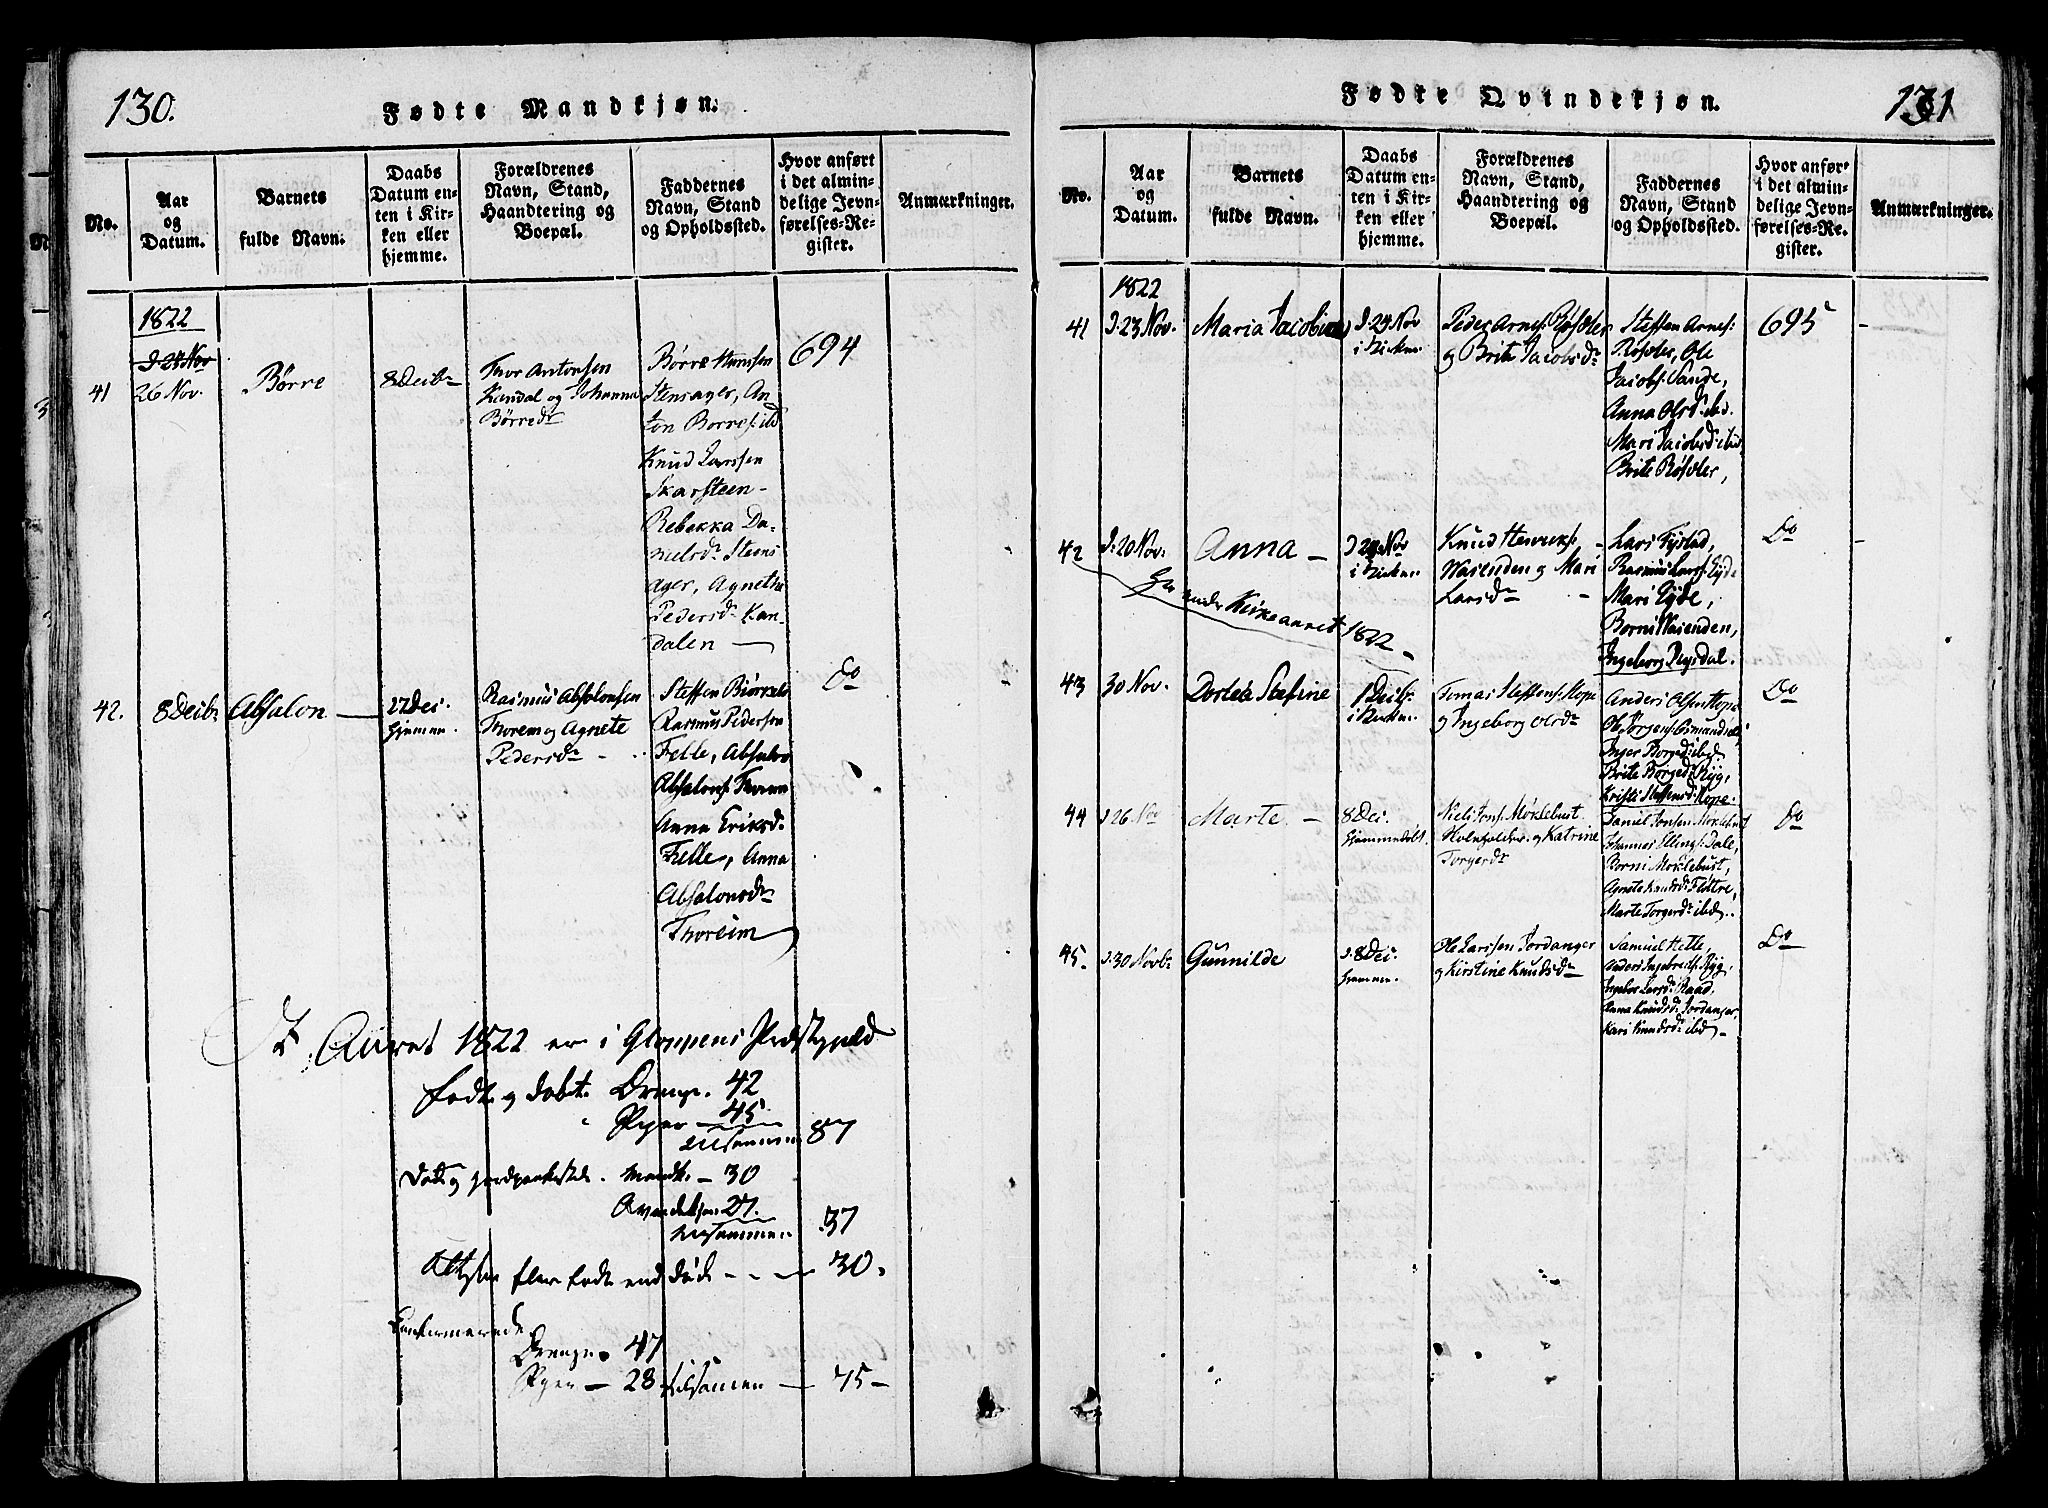 130.
Fødte Mandkjøn.
No.
Aar
og
Datum.
Barnets
fulde Navn.
Daabs
Datum en-
ten i Kir-
ken eller
hjemme.
Forældrenes
Navn, Stand,
Haandtering og
Boepæl.
Faddernes
Navn, Stand
og Opholdssted.
Hvor anført
i det almin-
delige Jevn-
førelses-Re-
gister.
Anmærkninger.
1822
41
26 Nov.
Børre
8 Decbr
Thor Antonsen
Kandal og Johanna
Børredr
Børre
Stensager, An
ton Borres: ibd
Knud Larssen
Skarsteen -
Rebekka Da-
nielsdr Steens
ager, Agnethe
Pedersdr Kan-
dalen
694
42.
8 Decbr
Absalon
27 Dec.
hjemme.
Rasmus Absalonsen
Thorem og Agnete
Pedersdr
Steffen
Rasmus Pedersen
Felle, Absalon
Absalons:
Anna Eriksd.
Felle, Anna
Absalonsdr
Thoreim
do
Aaret 1822 er i Gloppens Præstegield
født og døbt Drenge. 42
Piger - 45
tilsammen 87
Døde og Mandk. - 30
Qvindekjøn 27.
tilsammen 37
flere født end død - - - 30.
Confirmerede
Drenge. 47
Piger - 28 tilsamen - 75 -
131
Fødte Qvindekjøn.
No.
Aar
og
Datum.
Barnets
fulde Navn.
Daabs
Datum en-
ten i Kir-
ken eller
hjemme.
Forældrenes
Navn, Stand,
Haandtering og
Boepæl.
Faddernes
Navn, Stand
og Opholdssted.
Hvor anført
i det almin-
delige Jevn-
førelses-Re-
gister.
Anmærkninger.
1822
41
d. 23 Nov.
Maria Jacobine
d. 24 Nov
i Kirken
Peder Arnes:
og Brite Jacobsdr
Steffen Arnes:
Ole
Jacobs: Sande,
Anna Olsd: ibd.
Mari Jacobsd: ibd
Brite
695
42
d. 20 Nov.
Anna -
d 24 Nov
i Kirken
Knud Henriks:
Wasenden og Mari
Larsdr
Lars
Rasmus Larss: Eyde
Mari Eyde,
Borni Wasenden,
Ingeborg
Do
Kirkeaaret 1822 -
43
30 Nov.
Dortea Stefine
1 Decbr.
i Kirken.
Tomas Steffens: Hope
og Ingeborg Olsdr
Anders Olsen Hope
Ole Jørgens:
Inger Borged: ibd
Brite Borged: Ryg,
Kristi Steffensd: Hope.
Do
44
d 26 Nov
Marte -
8 Dec.
hjemmedøbt.
Niels Jons: Møklebust
og Katrine
Torgerdr
Daniel Jonsen Møklebust
Johannes Ellings: Dale,
Borni Moklebust,
Agnete Knudsd: Fløtre,
Marte Torgerd: ibd.
Do
45.
d. 30 Novbr
Gunnilde
d 8 Dec.
hjemme.
Ole Larssen Jordanger
og Kirstine Knudsdr
Samuel Hetle,
Anders Ingebrets: Ryg,
Ingebor Larsd:
Anna Knudsd: Jordanger
Kari Knudsd: ibd -
Do